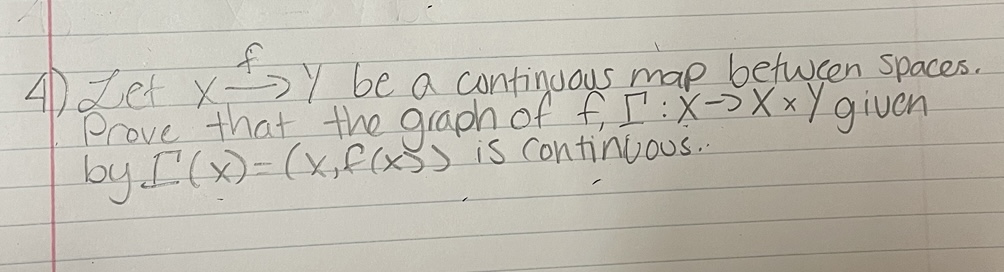 4) Let X →f Y be a continuous map between spaces.
Prove that the graph of f, Γ: X → X × Y given
by Γ(x) = (x, f(x)) is continuous..